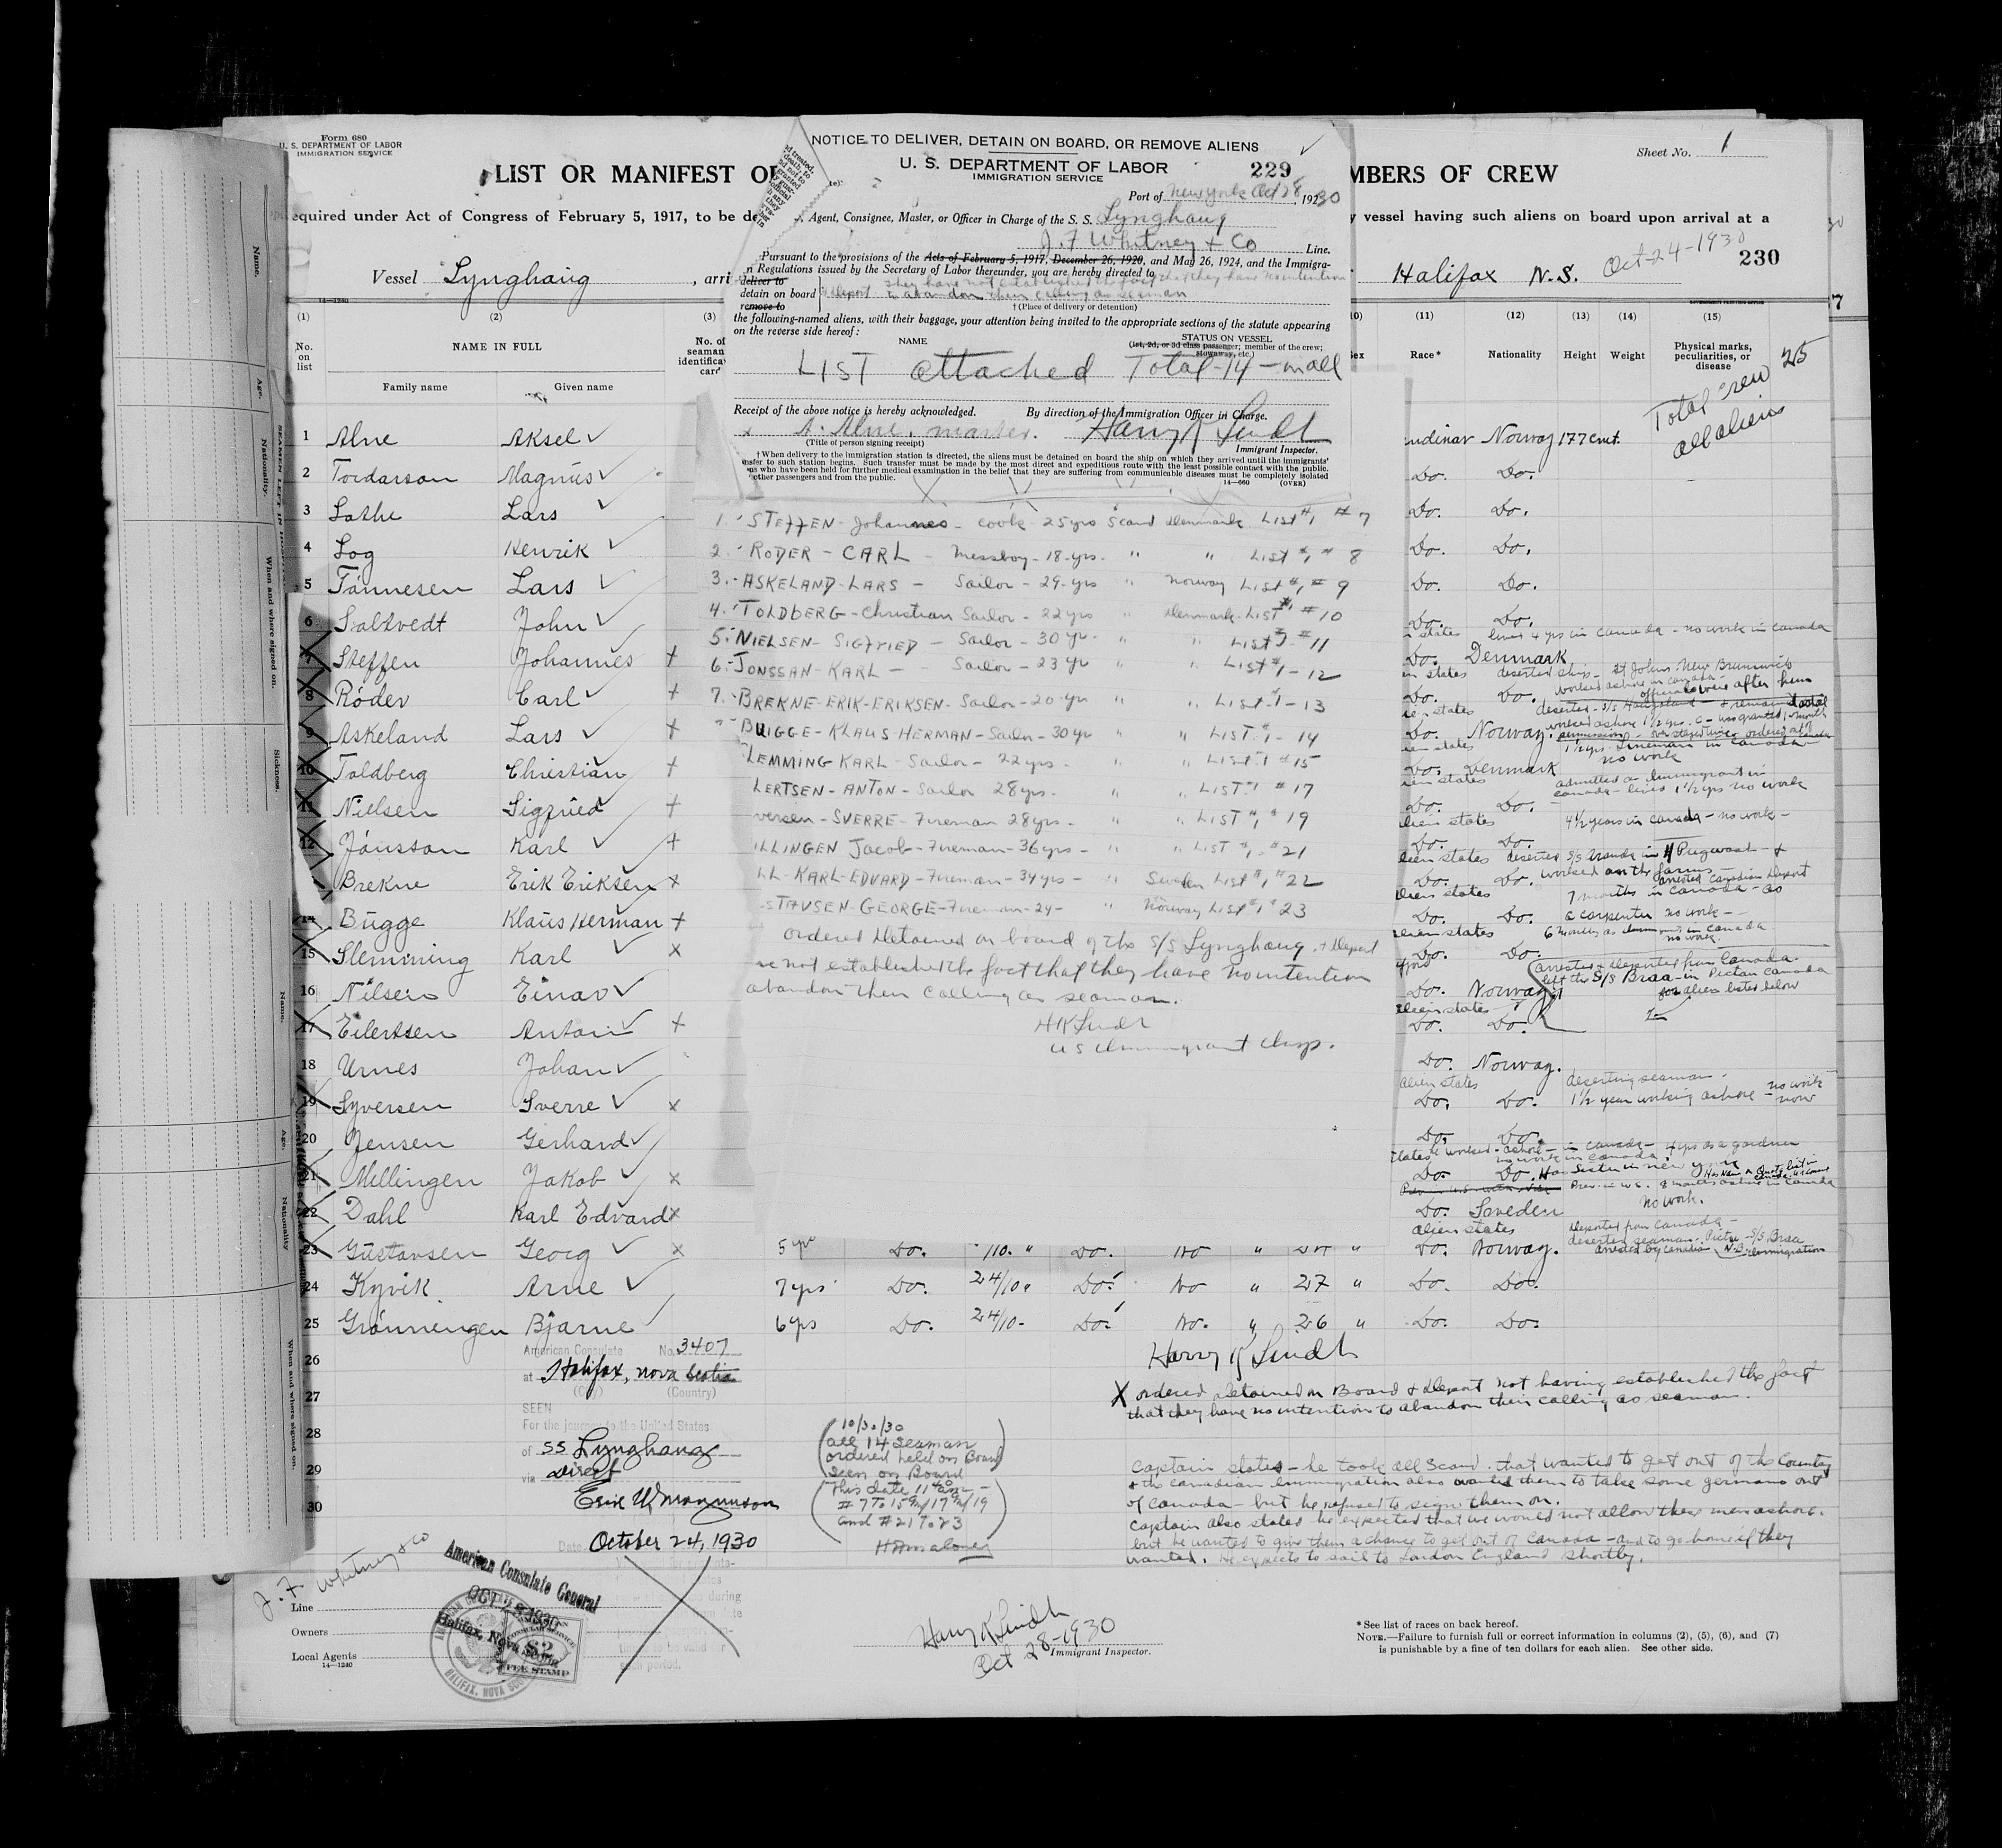 Form 680
U. S. DEPARTMENT OF LABOR
IMMIGRATION SERVICE
LIST OR MANIFEST O
MBERS OF CREW
Sheet No. 1
equired under Act of Congress of February 5, 1917, to be de
y vessel having such aliens on board upon arrival at a
Vessel Lynghaug, arri
Halifax N.S. Oct-24-1930
230
14—1240
NOTICE TO DELIVER, DETAIN ON BOARD, OR REMOVE ALIENS
U. S. DEPARTMENT OF LABOR
IMMIGRATION SERVICE
229
Port of New York Oct 28, 1930
Agent, Consignee, Master, or Officer in Charge of the S. S. Lynghaug
J. F Whitney + Co Line.
Pursuant to the provisions of the Acts of February 5, 1917, December 26, 1920, and May 26, 1924, and the Immigra-
n Regulations issued by the Secretary of Labor thereunder, you are hereby directed to
deliver to
detain on board
remove to
they have not established the fact that they have no intention
Deport to abandon their calling as seaman
† (Place of delivery or detention)
the following-named aliens, with their baggage, your attention being invited to the appropriate sections of the statute appearing
on the reverse side hereof:
NAME
STATUS ON VESSEL
(1st, 2d, or 3d class passenger; member of the crew;
stowaway, etc.)
LIST attached Total-14-in all
Receipt of the above notice is hereby acknowledged. By direction of the Immigration Officer in Charge.
x A. Alne, master. Harry K Lindh
(Title of person signing receipt) Immigrant Inspector.
† When delivery to the immigration station is directed, the aliens must be detained on board the ship on which they arrived until the immigrants'
nsfer to such station begins. Such transfer must be made by the most direct and expeditious route with the least possible contact with the public.
ns who have been held for further medical examination in the belief that they are suffering from communicable diseases must be completely isolated
other passengers and from the public.
14—660 (OVER)
(1) (2) (3)
No. on list
NAME IN FULL
Family name Given name
No. of
seaman
identifica
car
10) (11) (12) (13) (14) (15)
Sex Race* Nationality Height Weight Physical marks, peculiarities, or disease
25
Total crew
all aliens
1 Alne Aksel
ndinav Norway 177 cmt.
2 Tordarson Magnus
Do. Do.
3 Lothe Lars
Do. Do.
4 Log Henrik
Do. Do.
5 Tönnesen Lars
Do. Do.
6 Saltvedt John
Do. Do.
7 Steffen Johannes +
n states lived 4 yrs in Canada - no work in Canada
Do. Denmark
8 Röder Carl +
en states deserted ship - St Johns New Brunswick
worked ashore in Canada -
officials were after him
Do. Do.
9 Askeland Lars +
Do. Norway.
10 Toldberg Christian +
1½ yrs in Canada
no work
Do. Denmark
11 Nielsen Sigfried +
admitted as Immigrant in
Canada - lived 1½ yrs no work
Do. Do.
12 Jönsson Karl +
lien states 4½ years in Canada - no work -
Do. Do.
Brekne Erik Eriksen x
lien states deserted S/S in Pugwash - +
worked on the farms
arrested Canadian Deport
Do. Do.
14 Bugge Klaus Herman +
lien states 7 months in Canada - as
a carpenter no work -
Do. Do.
15 Slemming Karl x
lien states 6 months as in Canada
no work.
Do. Do.
16 Nilsen Einar
arrested + deported from Canada.
left the S/S Braa - in Pictou Canada
for alien listed below
Do. Norway
17 Eilertsen Anton +
alien states
Do. Do.
18 Urnes Johan
Do. Norway.
19 Syversen Sverre x
alien states deserting seaman -
1½ year working ashore - no work now
Do. Do.
20 Jensen Gerhard
Do. Do.
21 Millingen Jakob x
states worked ashore - in Canada - 4 yrs as a gardner
no work in Canada.
Do. Do. Has Sister in New York
22 Dahl Karl Edvard x
Prev. in U.S. 8 months ashore in Canada
no work.
Do. Sweden
23 Gustavsen Georg x
5 yr Do. /10. " Do. No " 24 " Do. Norway.
alien states Deported from Canada -
deserted seaman - Pictou - S/S Braa
arrested by Canadian Immigration
24 Kyvik Arne
7 yrs Do. 24/10. Do. No " 27 " Do. Do.
25 Grönnengen Bjarne
6 yrs Do. 24/10- Do. No. " 26 " Do. Do.
26
27
28
29
30
1. STEFFEN - Johannes - cook - 25 yrs Scand Denmark List #1 # 7
2. RODER - CARL - Messboy - 18-yrs. " " List #1 # 8
3. ASKELAND-LARS - Sailor - 29-yrs " Norway List #1 # 9
4. TOLDBERG - Christian Sailor - 22 yrs " Denmark - LIST #1 #10
5. NIELSEN - SIGFRIED - Sailor - 30 yr. " " LIST #1 #11
6. JONSSAN - KARL - Sailor - 23 yr " " LIST #1 - 12
7. BREKNE - ERIK - ERIKSEN - Sailor - 20-yr " " LIST #1 - 13
BUGGE - KLAUS HERMAN - Sailor - 30 yr " " LIST. #1 - 14
LEMMING KARL - Sailor - 22 yrs. " " LIST #1 #15
LERTSEN - ANTON - Sailor 28 yrs. " " LIST #1 #17
versen - SVERRE - Fireman 28 yrs. " " LIST #1 #19
ILLINGEN Jacob - Fireman - 36 yrs - " " LIST #1 - #21
LL - KARL - EDVARD - Fireman - 34 yrs - " Sweden LIST #1 #22
STAVSEN - GEORGE - Fireman - 24 - " Norway LIST #1 #23
ordered detained on board of the S/S Lynghaug. + Deport
ve not established the fact that they have no intention
abandon their calling as seaman.
H K Lindh
U S Immigrant Insp.
American Consulate No. 3407
at Halifax, Nova Scotia
(City) (Country)
SEEN
For the journey to the United States
of SS Lynghaug
via direct
Erik W. Magnuson
Date October 24, 1930
10/30/30
all 14 seaman
ordered held on Board
Seen on Board
this date 11 40 am -
# 7 To 15 17 19
and # 21 To 23
Harry K Lindh
X ordered detained on Board + Deport not having established the fact
that they have no intention to abandon their calling as seaman.
Captain states - he took all Scand. that wanted to get out of the Country
+ the Canadian Immigration also wanted them to take some germans out
of Canada - but he refused to sign them on.
Captain also stated he expected that we would not allow these men ashore.
but he wanted to give them a chance to get out of Canada - and to go home if they
wanted. He expects to sail to London England shortly.
J. F. Whitney + Co
Line
Owners
Local Agents
14—1240
American Consulate General
Halifax, Nova Scotia
FEE STAMP
Harry K Lindh
Oct 28-1930
Immigrant Inspector.
* See list of races on back hereof.
NOTE.—Failure to furnish full or correct information in columns (2), (5), (6), and (7)
is punishable by a fine of ten dollars for each alien. See other side.
Name.
Age.
Nationality.
When and where signed on.
Sickness.
SEAMEN LEFT IN
Name.
Age.
Nationality
When and where signed on.